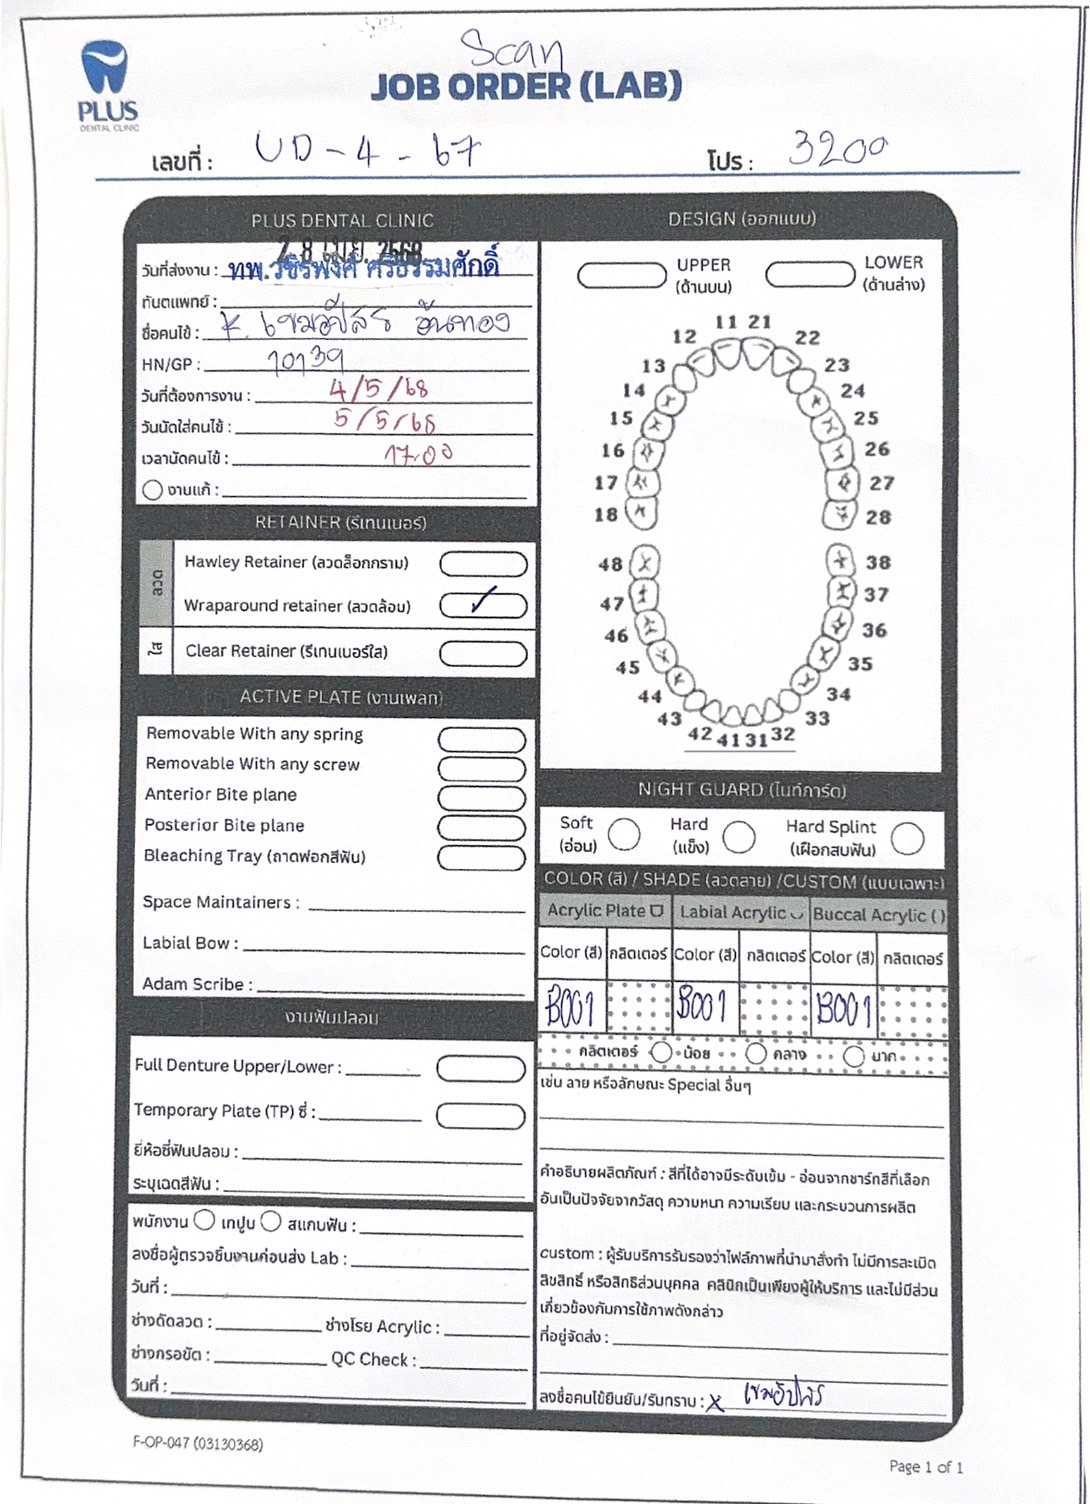 Scan
PLUS
DENTAL CLINIC
JOB ORDER (LAB)
เลขที่ : UD-4-67
โปร : 3200
PLUS DENTAL CLINIC
28 เม.ย. 2568
วันที่ส่งงาน : ทพ.วชิรพงศ์ ศรีธรรมศักดิ์
ทันตแพทย์ :
ชื่อคนไข้ : K. เขมอัปสร อ้นทอง
HN/GP : 10139
วันที่ต้องการงาน : 4/5/68
วันนัดใส่คนไข้ : 5/5/68
เวลานัดคนไข้ : 17.00
งานแก้ :
RETAINER (รีเทนเนอร์)
ลวด
Hawley Retainer (ลวดล็อกกราม)
Wraparound retainer (ลวดล้อม) ✓
ใส
Clear Retainer (รีเทนเนอร์ใส)
ACTIVE PLATE (งานเพลท)
Removable With any spring
Removable With any screw
Anterior Bite plane
Posterior Bite plane
Bleaching Tray (ถาดฟอกสีฟัน)
Space Maintainers :
Labial Bow :
Adam Scribe :
งานฟันปลอม
Full Denture Upper/Lower :
Temporary Plate (TP) ซี่ :
ยี่ห้อซี่ฟันปลอม :
ระบุเฉดสีฟัน :
พนักงาน เทปูน สแกนฟัน :
ลงชื่อผู้ตรวจชิ้นงานก่อนส่ง Lab :
วันที่ :
ช่างดัดลวด : ช่างโรย Acrylic :
ช่างกรอขัด : QC Check :
วันที่ :
DESIGN (ออกแบบ)
UPPER LOWER
(ด้านบน) (ด้านล่าง)
11 21
12 22
13 23
14 24
15 25
16 26
17 27
18 28
48 38
47 37
46 36
45 35
44 34
43 33
42 41 31 32
NIGHT GUARD (ไนท์การ์ด)
Soft Hard Hard Splint
(อ่อน) (แข็ง) (เฝือกสบฟัน)
COLOR (สี) / SHADE (ลวดลาย) /CUSTOM (แบบเฉพาะ)
Acrylic Plate Labial Acrylic Buccal Acrylic ( )
Color (สี) กลิตเตอร์ Color (สี) กลิตเตอร์ Color (สี) กลิตเตอร์
B001 B001 B001
กลิตเตอร์ น้อย กลาง มาก
เช่น ลาย หรือลักษณะ Special อื่นๆ
คำอธิบายผลิตภัณฑ์ : สีที่ได้อาจมีระดับเข้ม - อ่อนจากชาร์ทสีที่เลือก
อันเป็นปัจจัยจากวัสดุ ความหนา ความเรียบ และกระบวนการผลิต
custom : ผู้รับบริการรับรองว่าไฟล์ภาพที่นำมาสั่งทำ ไม่มีการละเมิด
ลิขสิทธิ์ หรือสิทธิส่วนบุคคล คลินิกเป็นเพียงผู้ให้บริการ และไม่มีส่วน
เกี่ยวข้องกับการใช้ภาพดังกล่าว
ที่อยู่จัดส่ง :
ลงชื่อคนไข้ยืนยัน/รับทราบ : x เขมอัปสร
F-OP-047 (03130368)
Page 1 of 1